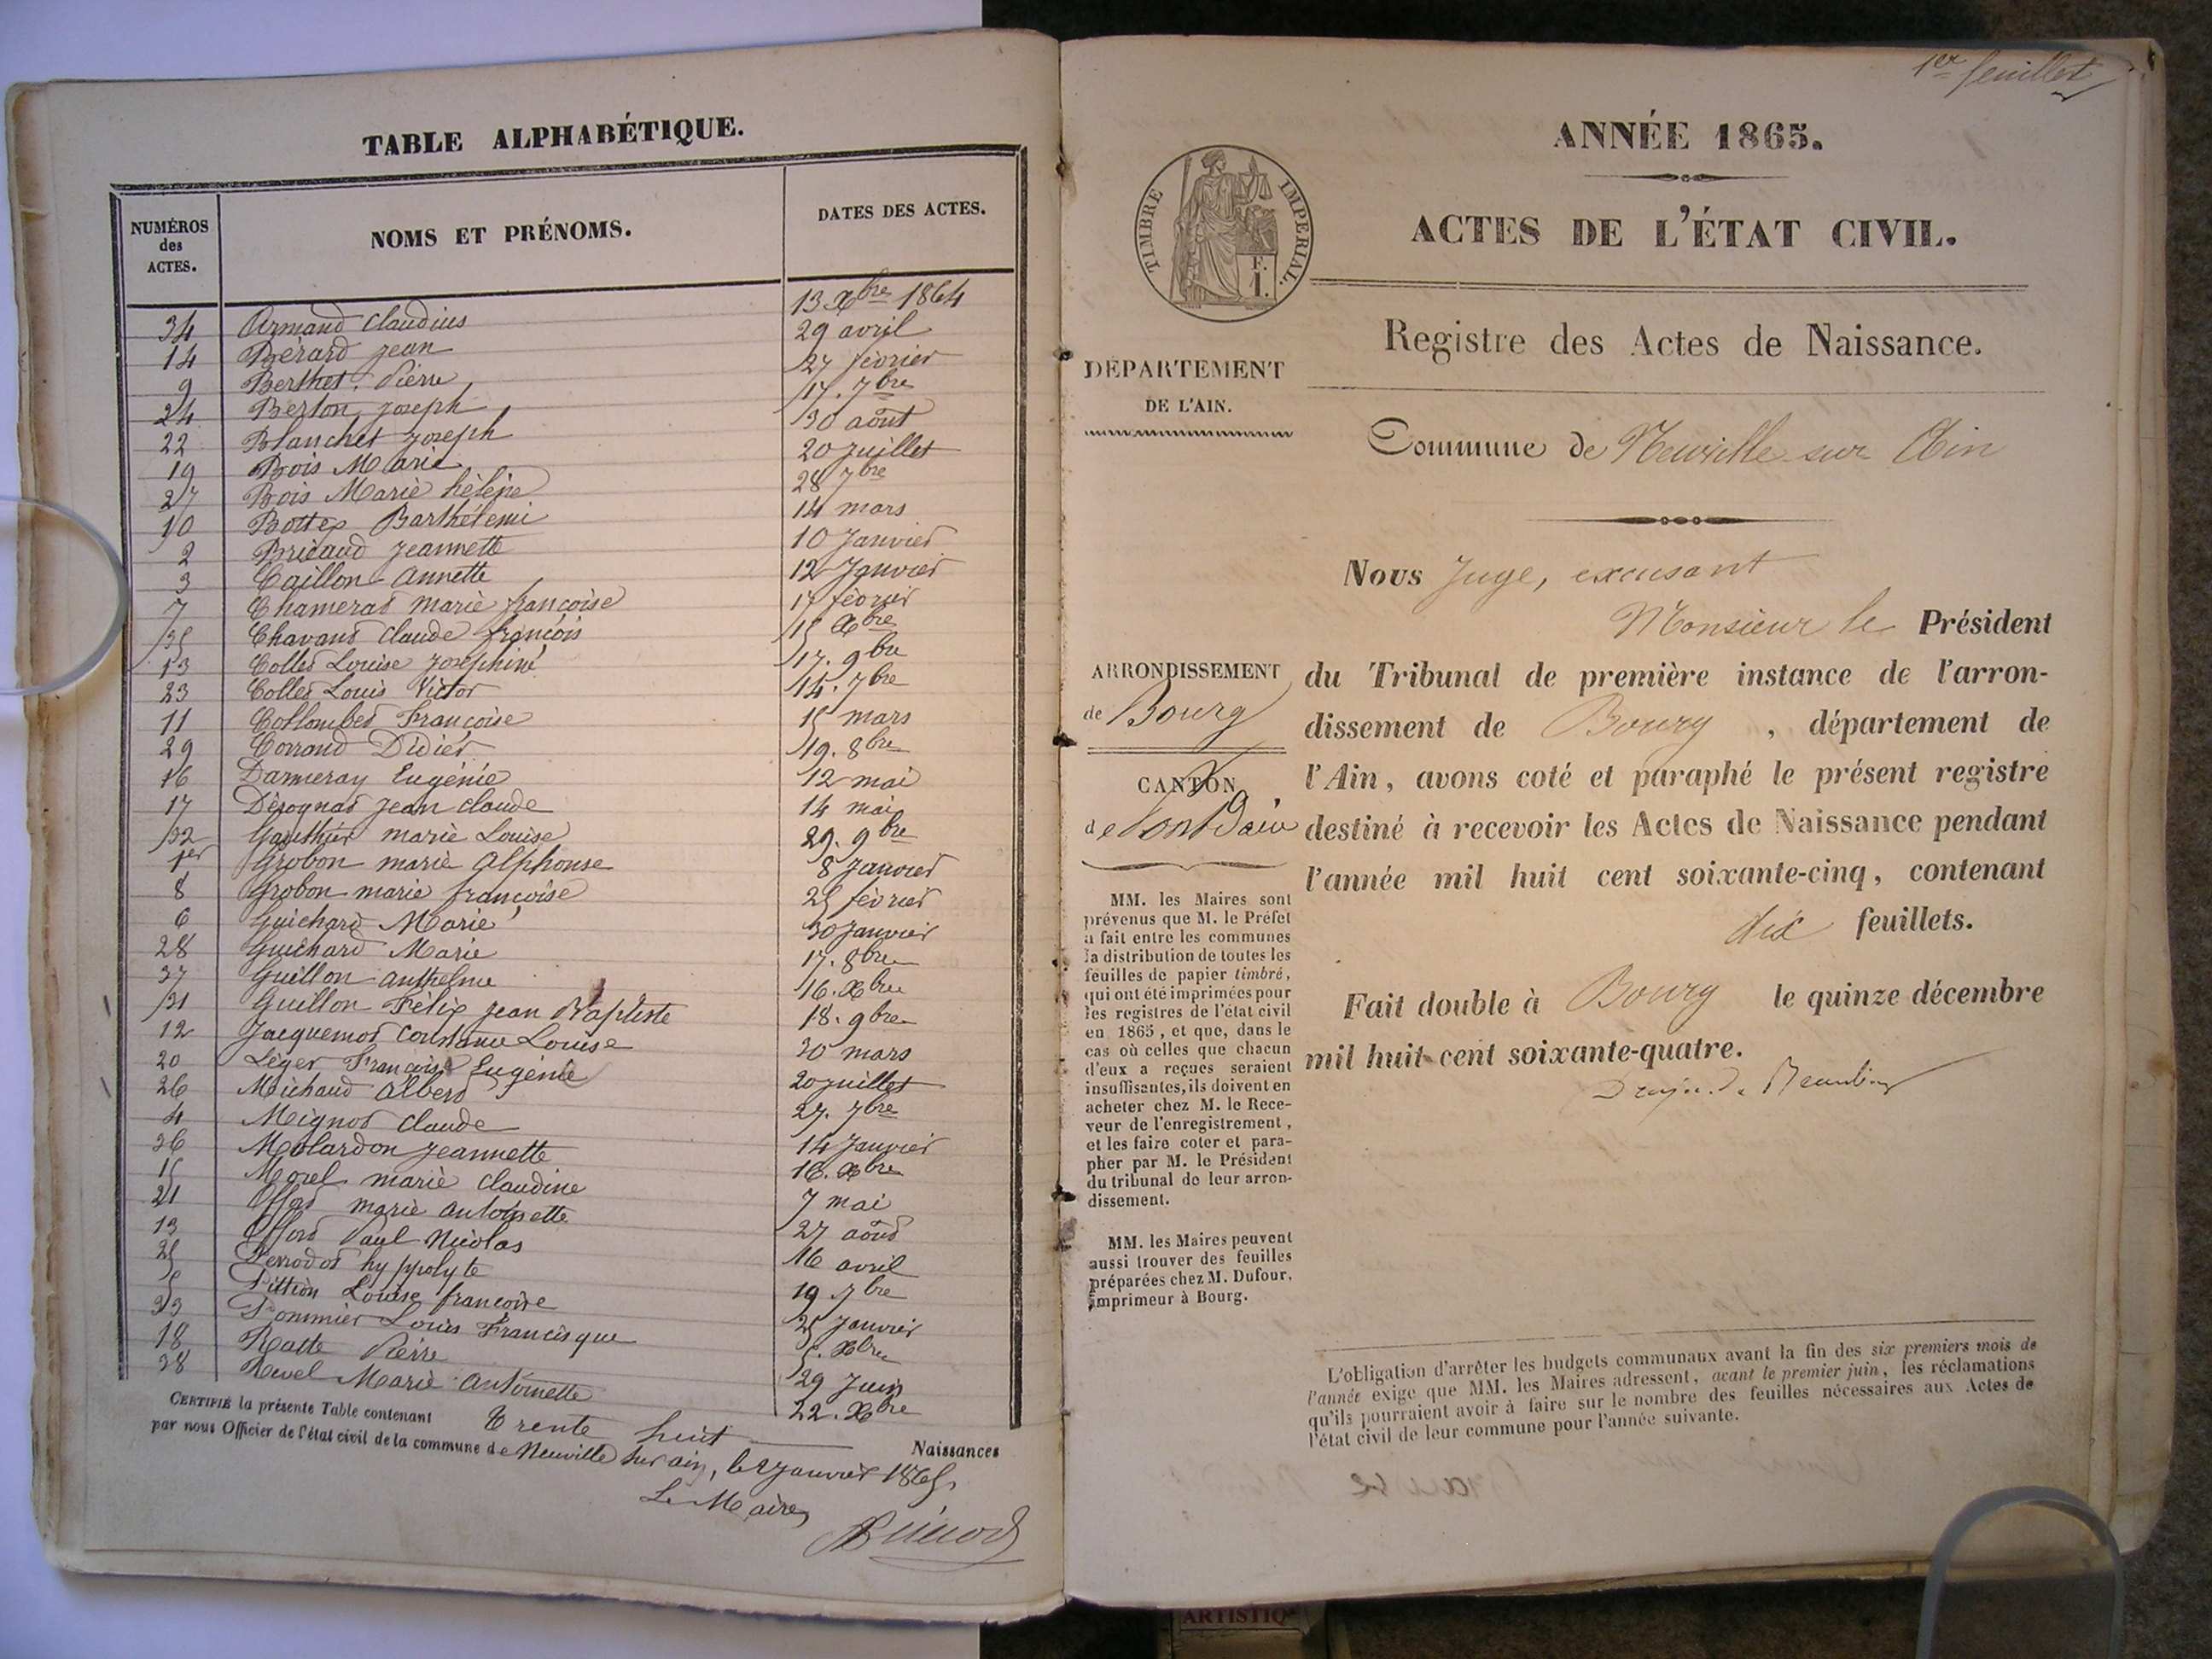 TABLE ALPHABÉTIQUE.
NUMÉROS des ACTES. NOMS ET PRÉNOMS. DATES DES ACTES.
34 Armand Claudius 13 Xbre 1864
14 Bérard Jean 29 avril
9 Berthet Pierre 27 février
24 Berton Joseph 17. 7bre
22 Blanchet Joseph 30 août
19 Bois Marie 20 juillet
27 Bois Marie hélène 28 7bre
10 Bottex Barthélemi 14 mars
2 Bricaud Jeannette 10 Janvier
3 Caillon Annette 12 Janvier
7 Chamerat marie françoise 17 février
35 Chavant Claude françois 15 Xbre
13 Collet Louise Joséphine 17. 9bre
23 Collet Louis Victor 14. 7bre
11 Collombet Françoise 15 mars
29 Corrand Didier 19. 8bre
16 Dameray Eugénie 12 mai
17 Dérognat Jean Claude 14 mai
32 Gauthier marie Louise 29. 9bre
1er Grobon marie Alphonse 8 Janvier
8 Grobon marie françoise 25 février
6 Guichard Marie 30 Janvier
28 Guichard Marie 17. 8bre
37 Guillon anthelme 16. Xbre
31 Guillon Félix Jean Baptiste 18. 9bre
12 Jacquemot Constance Louise 30 mars
20 Léger Françoise Eugénie 20 juillet
26 Michaud Albert 27. 7bre
4 Mignot Claude 14 Janvier
36 Molardon Jeannette 16. Xbre
15 Morel marie Claudine 7 mai
21 marie Antoinette 27 août
13 Paul Nicolas 16 avril
25 Perrodot hyppolyte 19. 7bre
5 Pittion Louise françoise 25 Janvier
33 Pommier Louis Francisque 5. Xbre
18 Ratte Pierre 29 Juin
38 Revel Marie Antoinette 22. Xbre
CERTIFIÉ la présente Table contenant Trente huit Naissances
par nous Officier de l'état civil de la commune de Neuville sur ain, le 2 janvier 1865.
Le Maire
1er feuillet
ANNÉE 1865.
ACTES DE L'ÉTAT CIVIL.
TIMBRE IMPÉRIAL.
F.
1.
Registre des Actes de Naissance.
DÉPARTEMENT
DE L'AIN.
Commune de Neuville sur Ain
Nous Juge, excusant
Monsieur le Président
du Tribunal de première instance de l'arron-
dissement de Bourg, département de
l'Ain, avons coté et paraphé le présent registre
destiné à recevoir les Actes de Naissance pendant
l'année mil huit cent soixante-cinq, contenant
dix feuillets.
Fait double à Bourg le quinze décembre
mil huit cent soixante-quatre.
ARRONDISSEMENT
de Bourg
CANTON
de Pont d'ain
MM. les Maires sont
prévenus que M. le Préfet
a fait entre les communes
la distribution de toutes les
feuilles de papier timbré,
qui ont été imprimées pour
les registres de l'état civil
en 1865, et que, dans le
cas où celles que chacun
d'eux a reçues seraient
insuffisantes, ils doivent en
acheter chez M. le Rece-
veur de l'enregistrement,
et les faire coter et para-
pher par M. le Président
du tribunal de leur arron-
dissement.
MM. les Maires peuvent
aussi trouver des feuilles
préparées chez M. Dufour,
imprimeur à Bourg.
L'obligation d'arrêter les budgets communaux avant la fin des six premiers mois de
l'année exige que MM. les Maires adressent, avant le premier juin, les réclamations
qu'ils pourraient avoir à faire sur le nombre des feuilles nécessaires aux Actes de
l'état civil de leur commune pour l'année suivante.
ARTISTIQ